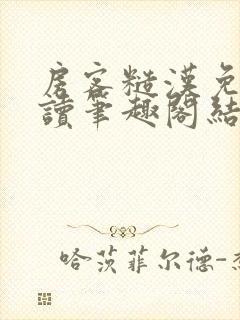 房客糙漢免
讀筆趣閣結
哈茨菲尔德-杰